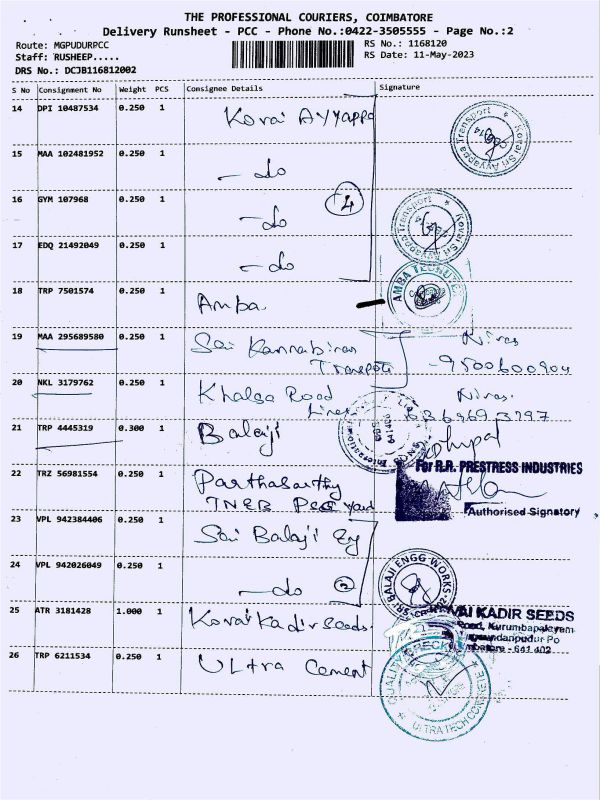 THE PROFESSIONAL COURIERS, COIMBATORE
Delivery Runsheet - PCC - Phone No.:0422-3505555 - Page No.:2
Route: MGPUDURPCC
RS No.: 1168120
Staff: RUSHEEP.....
RS Date: 11-May-2023
DRS No.: DCJB116812002
S No Consignment No Weight PCS Consignee Details Signature
14 DPI 10487534 0.250 1 Kovai Ayyappa
Kovai Sri Ayyappa Transport
15 MAA 102481952 0.250 1 - do
16 GYM 107968 0.250 1 - do 4
Kovai Sri Ayyappa Transport
17 EDQ 21492049 0.250 1 - do
18 TRP 7501574 0.250 1 Amba
19 MAA 295689580 0.250 1 Sai Kannabiran
Transport
Niras
- 9500600904
20 NKL 3179762 0.250 1 Khalsa Road
Lines
Niras
21 TRP 4445319 0.300 1 Balaji
641406
22 TRZ 56981554 0.250 1 Parthasarthy
TNEB PCC Yard
For R.R. PRESTRESS INDUSTRIES
Authorised Signatory
23 VPL 942384406 0.250 1 Sai Balaji Eg
24 VPL 942026049 0.250 1 - do 2
SRI BALAJI ENGG WORKS
25 ATR 3181428 1.000 1 Kovai Kadir Seeds.
KOVAI KADIR SEEDS
Road, Kurumbapalayam
Po
- 641 402
26 TRP 6211534 0.250 1 Ultra Cement
QUALITY CHECKED
ULTRATECH CONCRETE